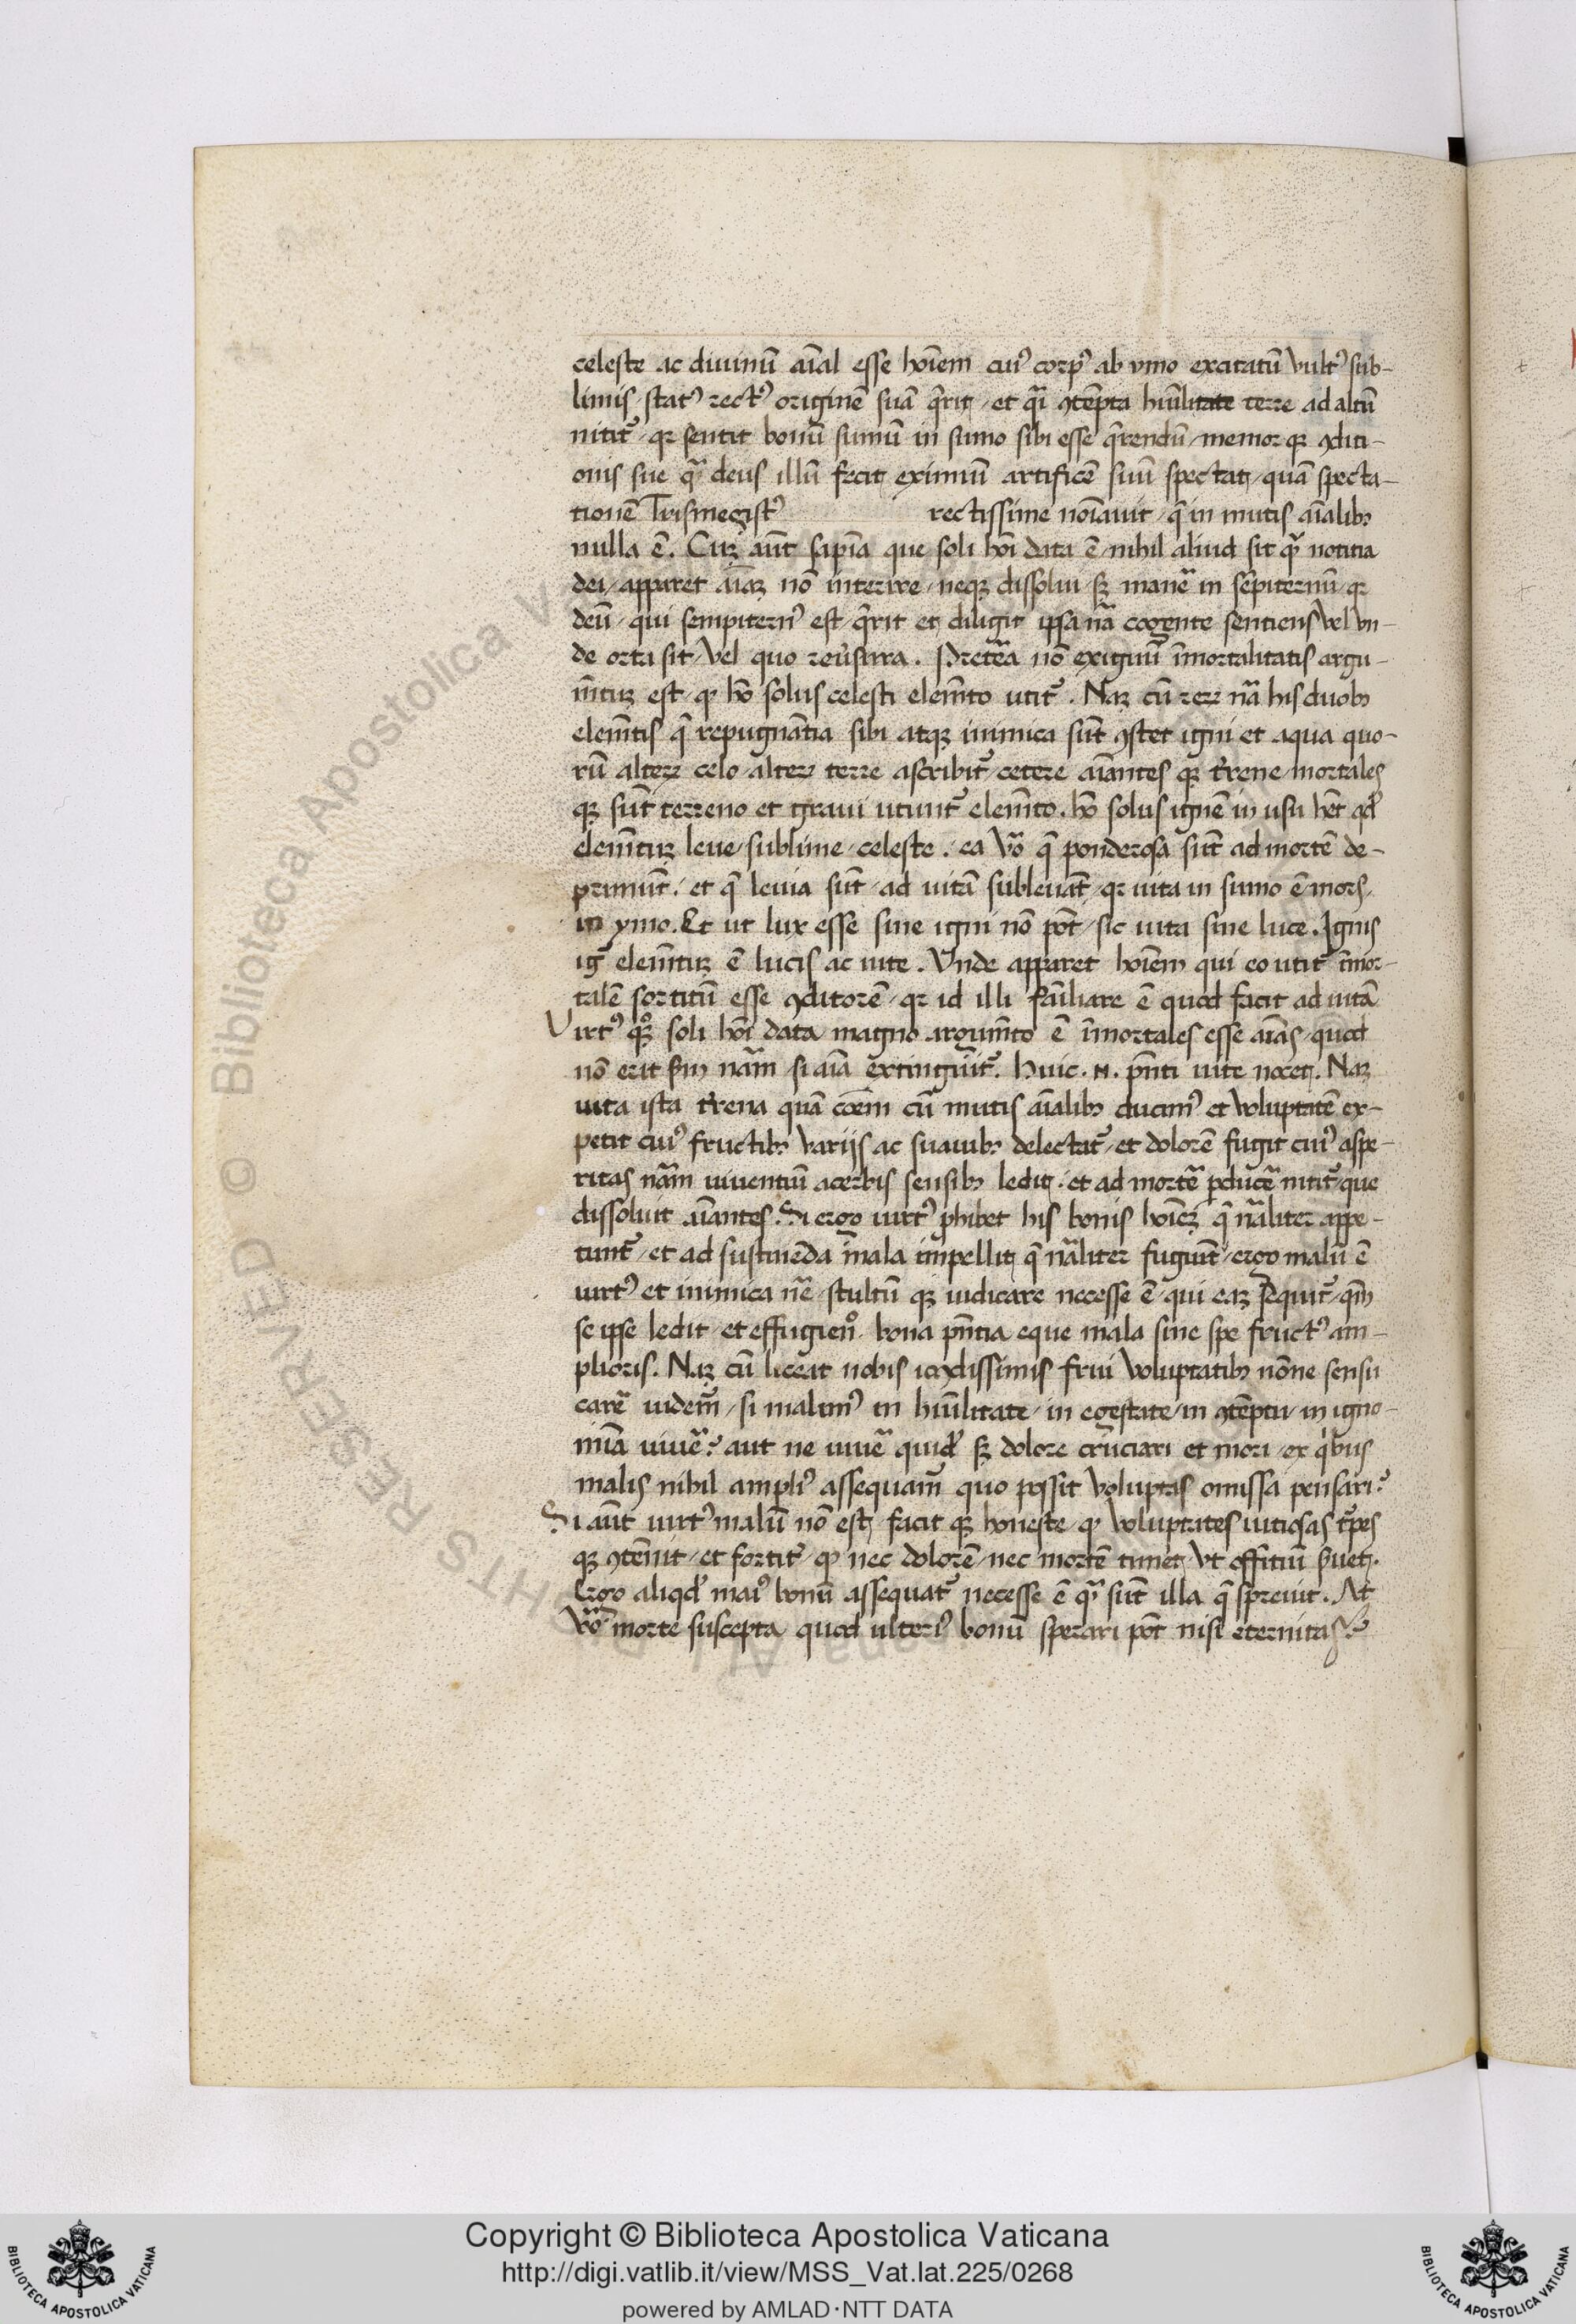 celeste ac diuinū aīal esse hoīem cuiꝰ corpꝰ ab ymo excitatū vultꝰ sub-
limis statꝰ rectꝰ originē suā q̄rit et q̄i ꝯtēpta hūilitate terre ad altū
nitit᷑ qr sentit bonū sūmū in sūmo sibi esse q̄rendū memor qꝫ ꝯditi-
onis sue qᵃ deus illū fecit eximiū artificē suū spectat quā specta-
tionē Trismegistꝰ rectissime noīauit q̄ in mutis aīalibꝫ
nulla ē. Cuꝫ aūt sapīa que soli hoī data ē nihil aliud sit qᵃ notitia
dei apparet aīaꝫ nō interire neqꝫ dissolui sꝫ manē in sēpiternū qr
deū qui sempiternꝰ est q̄rit et diligit ipsa nā cogente sentiens vel vn-
de orta sit vel quo reūsura. Pretēa nō exiguū īmortalitatis argu-
m̄tuꝫ est ꝙ hō solus celesti elem̄to utit᷑. Naꝫ cū reꝝ nā his duobꝫ
elem̄tis q̄ repugnātia sibi atqꝫ inimica sūt ꝯstet igni et aqua quo-
rū alteꝝ celo alteꝝ terre ascribit᷑ cetere aīantes qꝫ t̄rene mortales
qꝫ sūt terreno et graui utunt᷑ elem̄to. hō solus ignē in usu hēt qđ
elem̄tuꝫ leue sublime celeste. ea v̄o q̄ ponderosa sūt ad mortē de-
primūt. et q̄ leuia sūt ad uitā subleuāt qr uita in sūmo ē mors
in ymo. Et ut lux esse sine igni nō pōt sic uita sine luce. Ignis
ig̃ elem̄tuꝫ ē lucis ac uite. Vnde apparet hoīem qui eo utit᷑ īmor-
talē sortitū esse ꝯditorē qr id illi fāiliare ē quod facit ad uitā
Virtꝰ qꝫ soli hoī data magno argum̄to ē īmortales esse aīas quod
nō erit sm nām si aīa extinguit᷑. Huic .n. pn̄ti uite nocet. Naꝫ
uita ista t̄rena quā cōem cū mutis aīalibꝫ ducimꝰ et voluptatē ex-
petit cuiꝰ fructibꝫ varijs ac suauibꝫ delectat᷑ et dolorē fugit cuiꝰ aspe-
ritas nām uiuentiū acerbis sensibꝫ ledit. et ad mortē ꝑducē nitit᷑ que
dissoluit aīantes. Si ergo uirtꝰ ꝓhibet his bonis hoīeꝫ q̄ nāliter appe-
tunt᷑ et ad sustinēda mala impellit q̄ nāliter fugiūt ergo malū ē
uirtꝰ et inimica nē stultū qꝫ iudicare necesse ē qui eaꝫ sequit᷑ qm̄
se ipse ledit et effugien° bona pn̄tia eque mala sine spe fructꝰ am-
plioris. Naꝫ cū liceat nobis iocūdissimis frui voluptatibꝫ nōne sensu
carē uidem᷑ si malimꝰ in hūilitate in egestate in ꝯtēptu in igno-
minīa uiuē? aut ne uiuē quidē sꝫ dolore cruciari et mori ex qibus
malis nihil ampliꝰ assequam᷑ quo possit voluptas omissa pensari?
Si aūt uirtꝰ malū nō est facit qꝫ honeste ꝙ voluptates uitiosas t᷑pes
qꝫ ꝯtēnit et fortit᷑ ꝙ nec dolorē nec mortē timet vt offitiū s̄uet.
Ergo aliqđ maiꝰ bonū assequat᷑ necesse ē qᵃ sūt illa q̄ spreuit. At
v̄o morte suscepta quod ulteriꝰ bonū sperari pōt nisi eternitas?
Copyright © Biblioteca Apostolica Vaticana
http://digi.vatlib.it/view/MSS_Vat.lat.225/0268
powered by AMLAD·NTT DATA